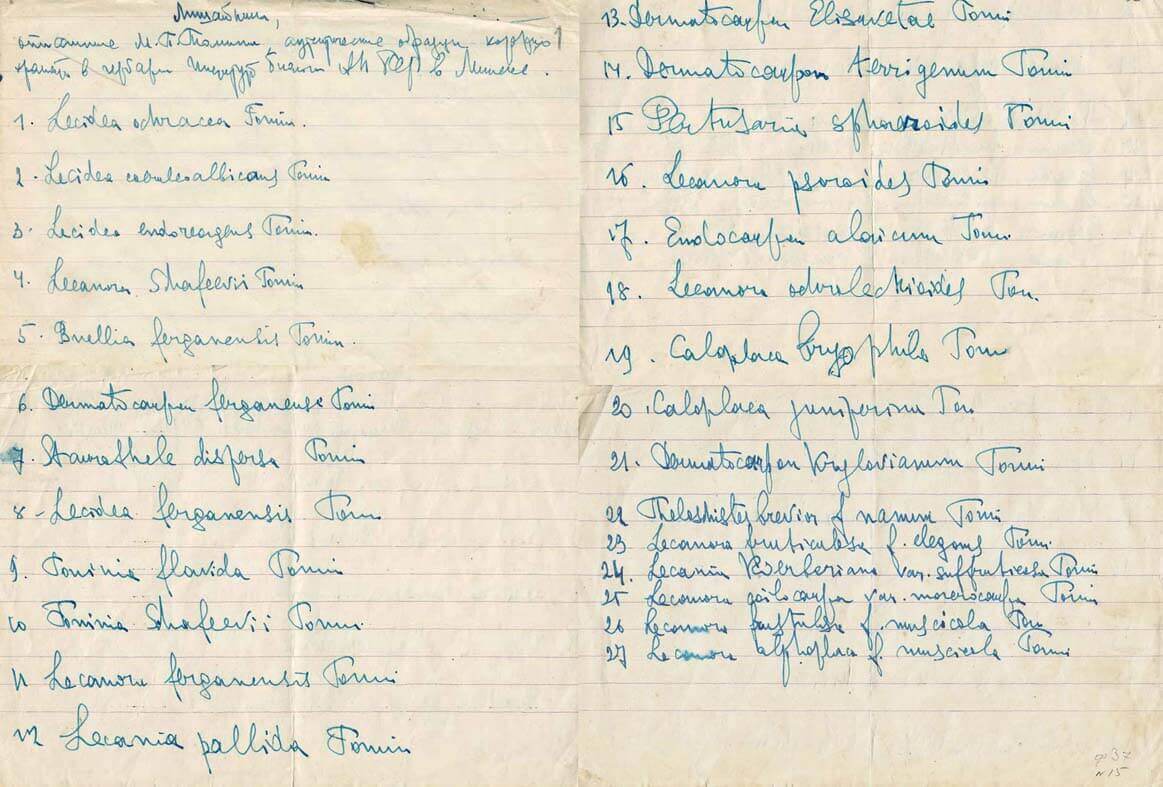 Лишайники,
описанные М. П. Томиным, аутентические образцы которых
хранят в гербарии Института биологии АН БССР в Минске.
1
1. Lecidea ochracea Tomin.
2. Lecidea coeruleoalbicans Tomin
3. Lecidea Tomin.
4. Lecanora Schafeevii Tomin
5. Buellia ferganensis Tomin.
6. Dermatocarpon ferganense Tomin
7. Staurothele dispersa Tomin
8 - Lecidea ferganensis Tomin
9. Toninia flavida Tomin
10 Toninia Schafeevii Tomin
11 Lecanora ferganensis Tomin
12 Lecania pallida Tomin
13. Dermatocarpon Elisavetae Tomin
14. Dermatocarpon terrigenum Tomin
15 Pertusaria sphaeroides Tomin
16. Lecanora psoroides Tomin
17. Endocarpon alaicum Tomin
18. Lecanora ochrolechioides Tom.
19. Caloplaca bryophila Tom
20. Caloplaca juniperina Tom
21. Dermatocarpon Krylovianum Tomin
22 Theloschistes brevior f. nanum Tomin
23 Lecanora fruticulosa f. elegans Tomin
24. Lecania Koerberiana var. suffruticosa Tomin
25 Lecanora var. macrocarpa Tomin
26 Lecanora pustulosa f. muscicola Tom
27 Lecanora alphoplaca f. muscicola Tomin
ф 37
N 15